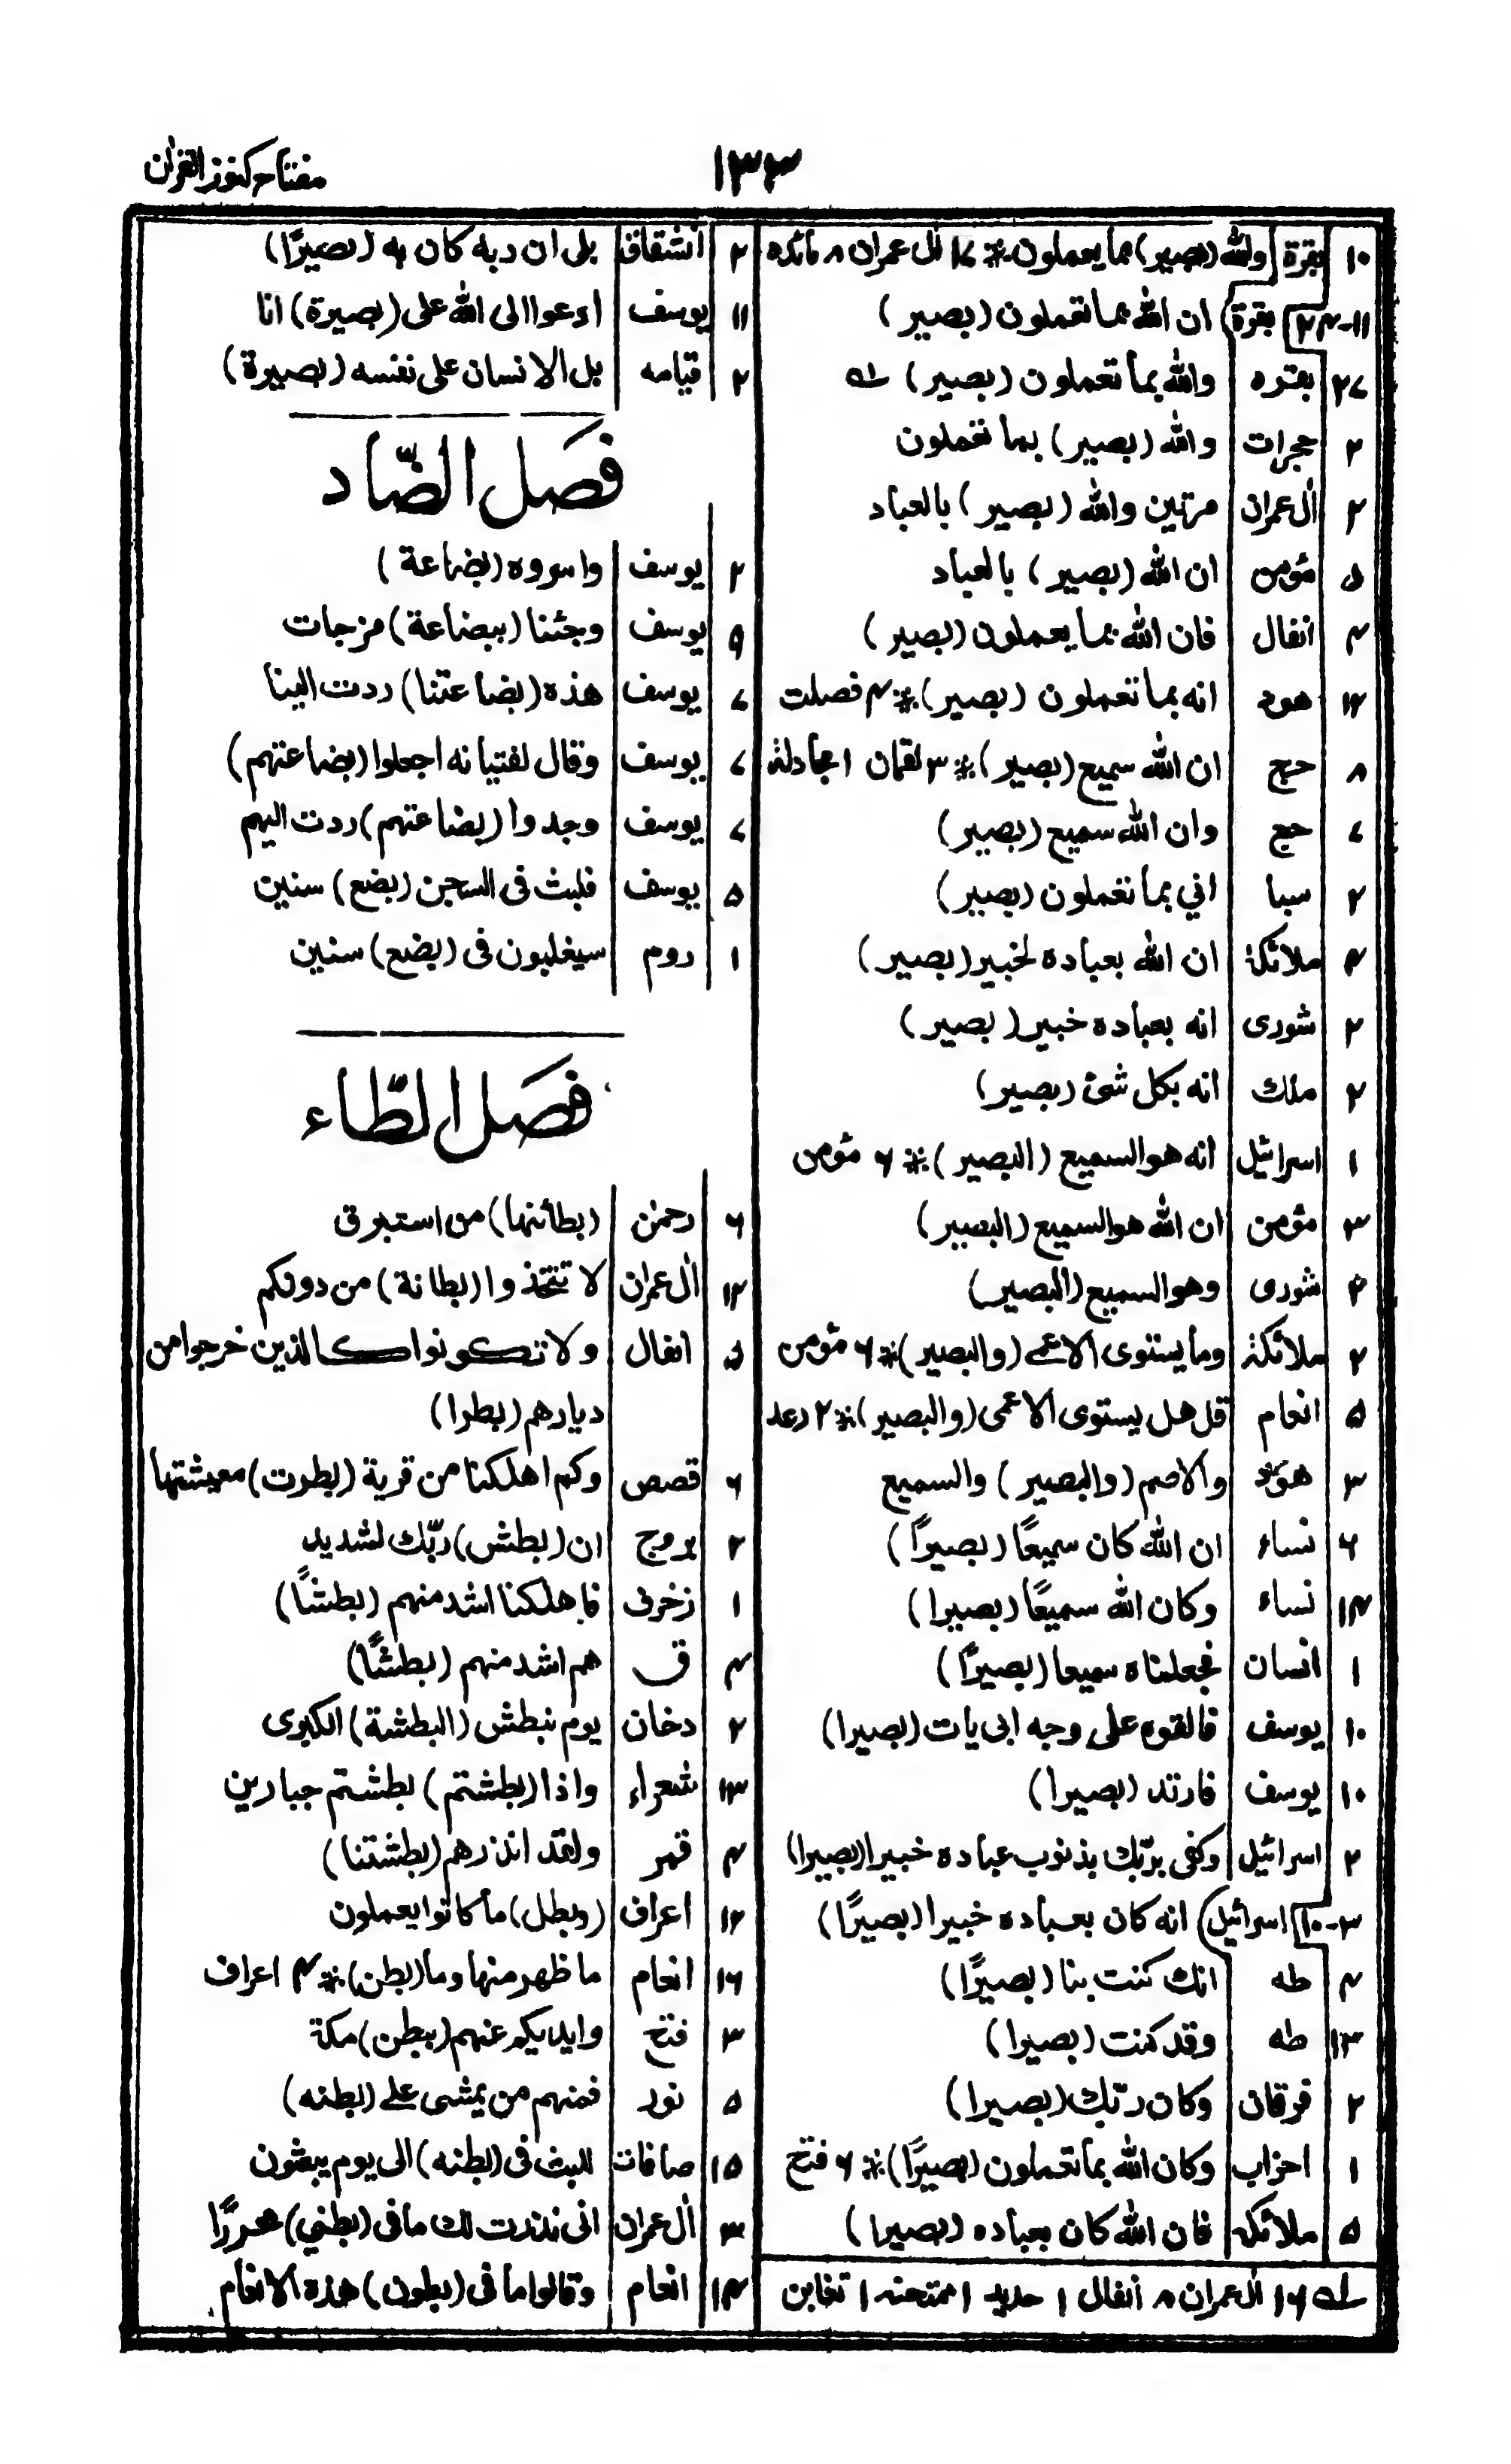 مفتاح كنوز القرآن
۱۳۳
۱۰ بقرة والله (بصير) بما يعملون ※ ۱۷ آل عمران ۸ مائده
۱۱-۲۴ بقرة ان الله بما تعملون (بصير)
۲۷ بقره والله بما تعملون (بصير) له
۲ حجرات والله (بصير) بما تعملون
۲ آل عمران مرتين والله (بصير) بالعباد
۵ مؤمن ان الله (بصير) بالعباد
۴ انفال فان الله بما يعملون (بصير)
۱۲ هود انه بما تعملون (بصير) ※ ۴ فصلت
۸ حج ان الله سميع (بصير) ※ ۳ لقمان ۱ مجادلة
۷ حج وان الله سميع (بصير)
۲ سبا اني بما تعملون (بصير)
۴ ملائكة ان الله بعباده لخبير (بصير)
۲ شورى انه بعباده خبير (بصير)
۲ ملك انه بكل شئ (بصير)
۱ اسرائيل انه هو السميع (البصير) ※ ۶ مؤمن
۳ مؤمن ان الله هو السميع (البصير)
۲ شورى وهو السميع (البصير)
۲ ملائكة وما يستوى الاعمى (والبصير) ※ ۶ مؤمن
۵ انعام قل هل يستوى الاعمى (والبصير) ※ ۲ رعد
۳ هود والاصم (والبصير) والسميع
۶ نساء ان الله كان سميعًا (بصيرًا)
۱۴ نساء وكان الله سميعًا (بصيرا)
۱ انسان فجعلناه سميعا (بصيرًا)
۱۰ يوسف فالقوه على وجه ابى يات (بصيرا)
۱۰ يوسف فارتد (بصيرا)
۲ اسرائيل وكفى بربّك بذنوب عباده خبيرا (بصيرا)
۳-۱۰ اسرائيل انه كان بعباده خبيرا (بصيرًا)
۴ طه انك كنت بنا (بصيرًا)
۱۳ طه وقد كنت (بصيرا)
۲ فرقان وكان ربّك (بصيرا)
۱ احزاب وكان الله بما تعملون (بصيرًا) ※ ۶ فتح
۵ ملائكة فان الله كان بعباده (بصيرا)
له ۱۶ آل عمران ۸ انفال ۱ حديد ۱ ممتحنه ۱ تغابن
۲ انشقاق بلى ان ربه كان به (بصيرًا)
۱۱ يوسف ادعوا الى الله على (بصيرة) انا
۲ قيامه بل الانسان على نفسه (بصيرة)
فصل الضّاد
۲ يوسف واسروه (بضاعة)
۹ يوسف وجئنا (ببضاعة) مزجات
۷ يوسف هذه (بضاعتنا) ردت الينا
۷ يوسف وقال لفتيانه اجعلوا (بضاعتهم)
۷ يوسف وجدوا (بضاعتهم) ردت اليهم
۵ يوسف فلبث فى السجن (بضع) سنين
۱ روم سيغلبون فى (بضع) سنين
فصل الطّاء
۶ رحمٰن (بطائنها) من استبرق
۱۲ آل عمران لا تتخذوا (بطانة) من دونكم
۵ انفال ولا تكونوا كالذين خرجوا من
ديارهم (بطرا)
۶ قصص وكم اهلكنا من قرية (بطرت) معيشتها
۲ بروج ان (بطش) ربّك لشديد
۱ زخرف فاهلكنا اشد منهم (بطشًا)
۴ ق هم اشد منهم (بطشًا)
۲ دخان يوم نبطش (البطشة) الكبرى
۱۳ شعراء واذا (بطشتم) بطشتم جبارين
۴ قمر ولقد انذرهم (بطشتنا)
۱۲ اعراف (وبطل) ما كانوا يعملون
۱۶ انعام ما ظهر منها وما (بطن) ※ ۴ اعراف
۳ فتح وايديكم عنهم (ببطن) مكة
۵ نور فمنهم من يمشى على (بطنه)
۱۵ صافات للبث فى (بطنه) الى يوم يبعثون
۳ آل عمران انى نذرت لك ما فى (بطني) محررًا
۱۴ انعام وقالوا ما فى (بطون) هذه الانعام